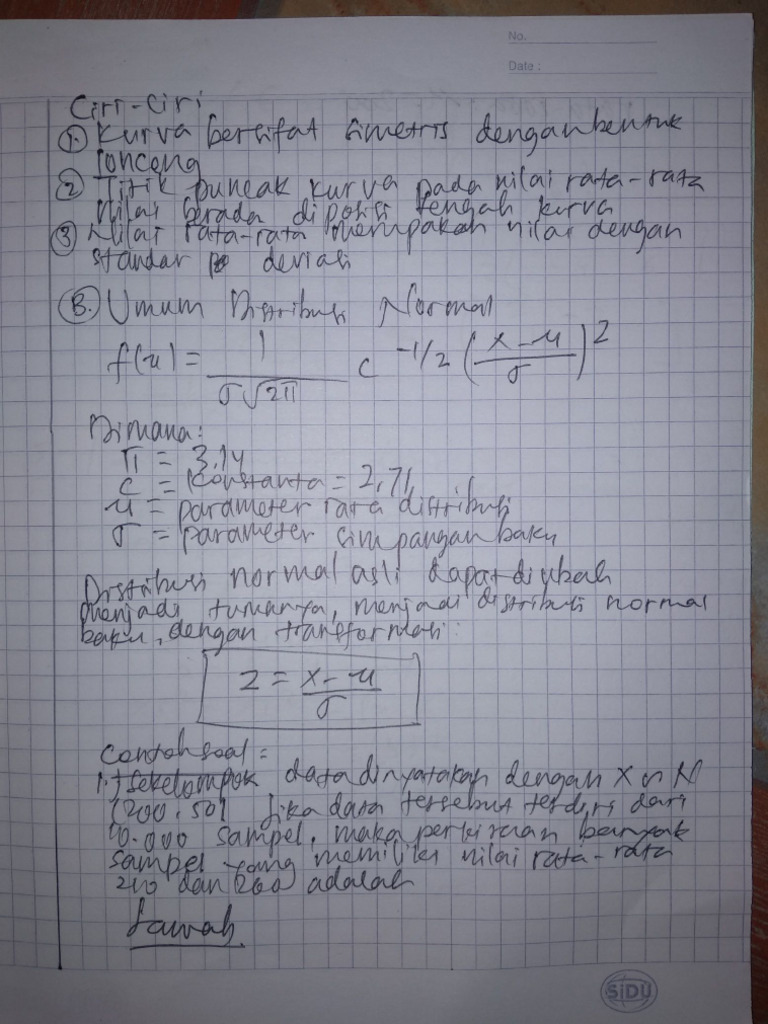 No.
Date :
Ciri-ciri
1. Kurva bersifat simetris dengan bentuk
lonceng
2 Titik puncak kurva pada nilai rata-rata
Nilai berada di posisi tengah kurva
3 Nilai rata-rata merupakan nilai dengan
standar deviasi
B. Umum Distribusi Normal
f(u) = 1 / σ√2π c -1/2 (x-u / σ)2
Dimana:
π = 3.14
c = Konstanta = 2,71
u = parameter rata distribusi
σ = parameter simpangan baku
Distribusi normal asli dapat diubah
menjadi menjadi distribusi normal
baku, dengan transformasi:
Z = x-u / σ
Contoh soal =
1. Sekelompok data dinyatakan dengan X ~ N
(200, 50) Jika data tersebut terdiri dari
10.000 sampel, maka perkiraan banyak
sampel yang memiliki nilai rata-rata
210 dan 260 adalah
Jawab.
SiDU